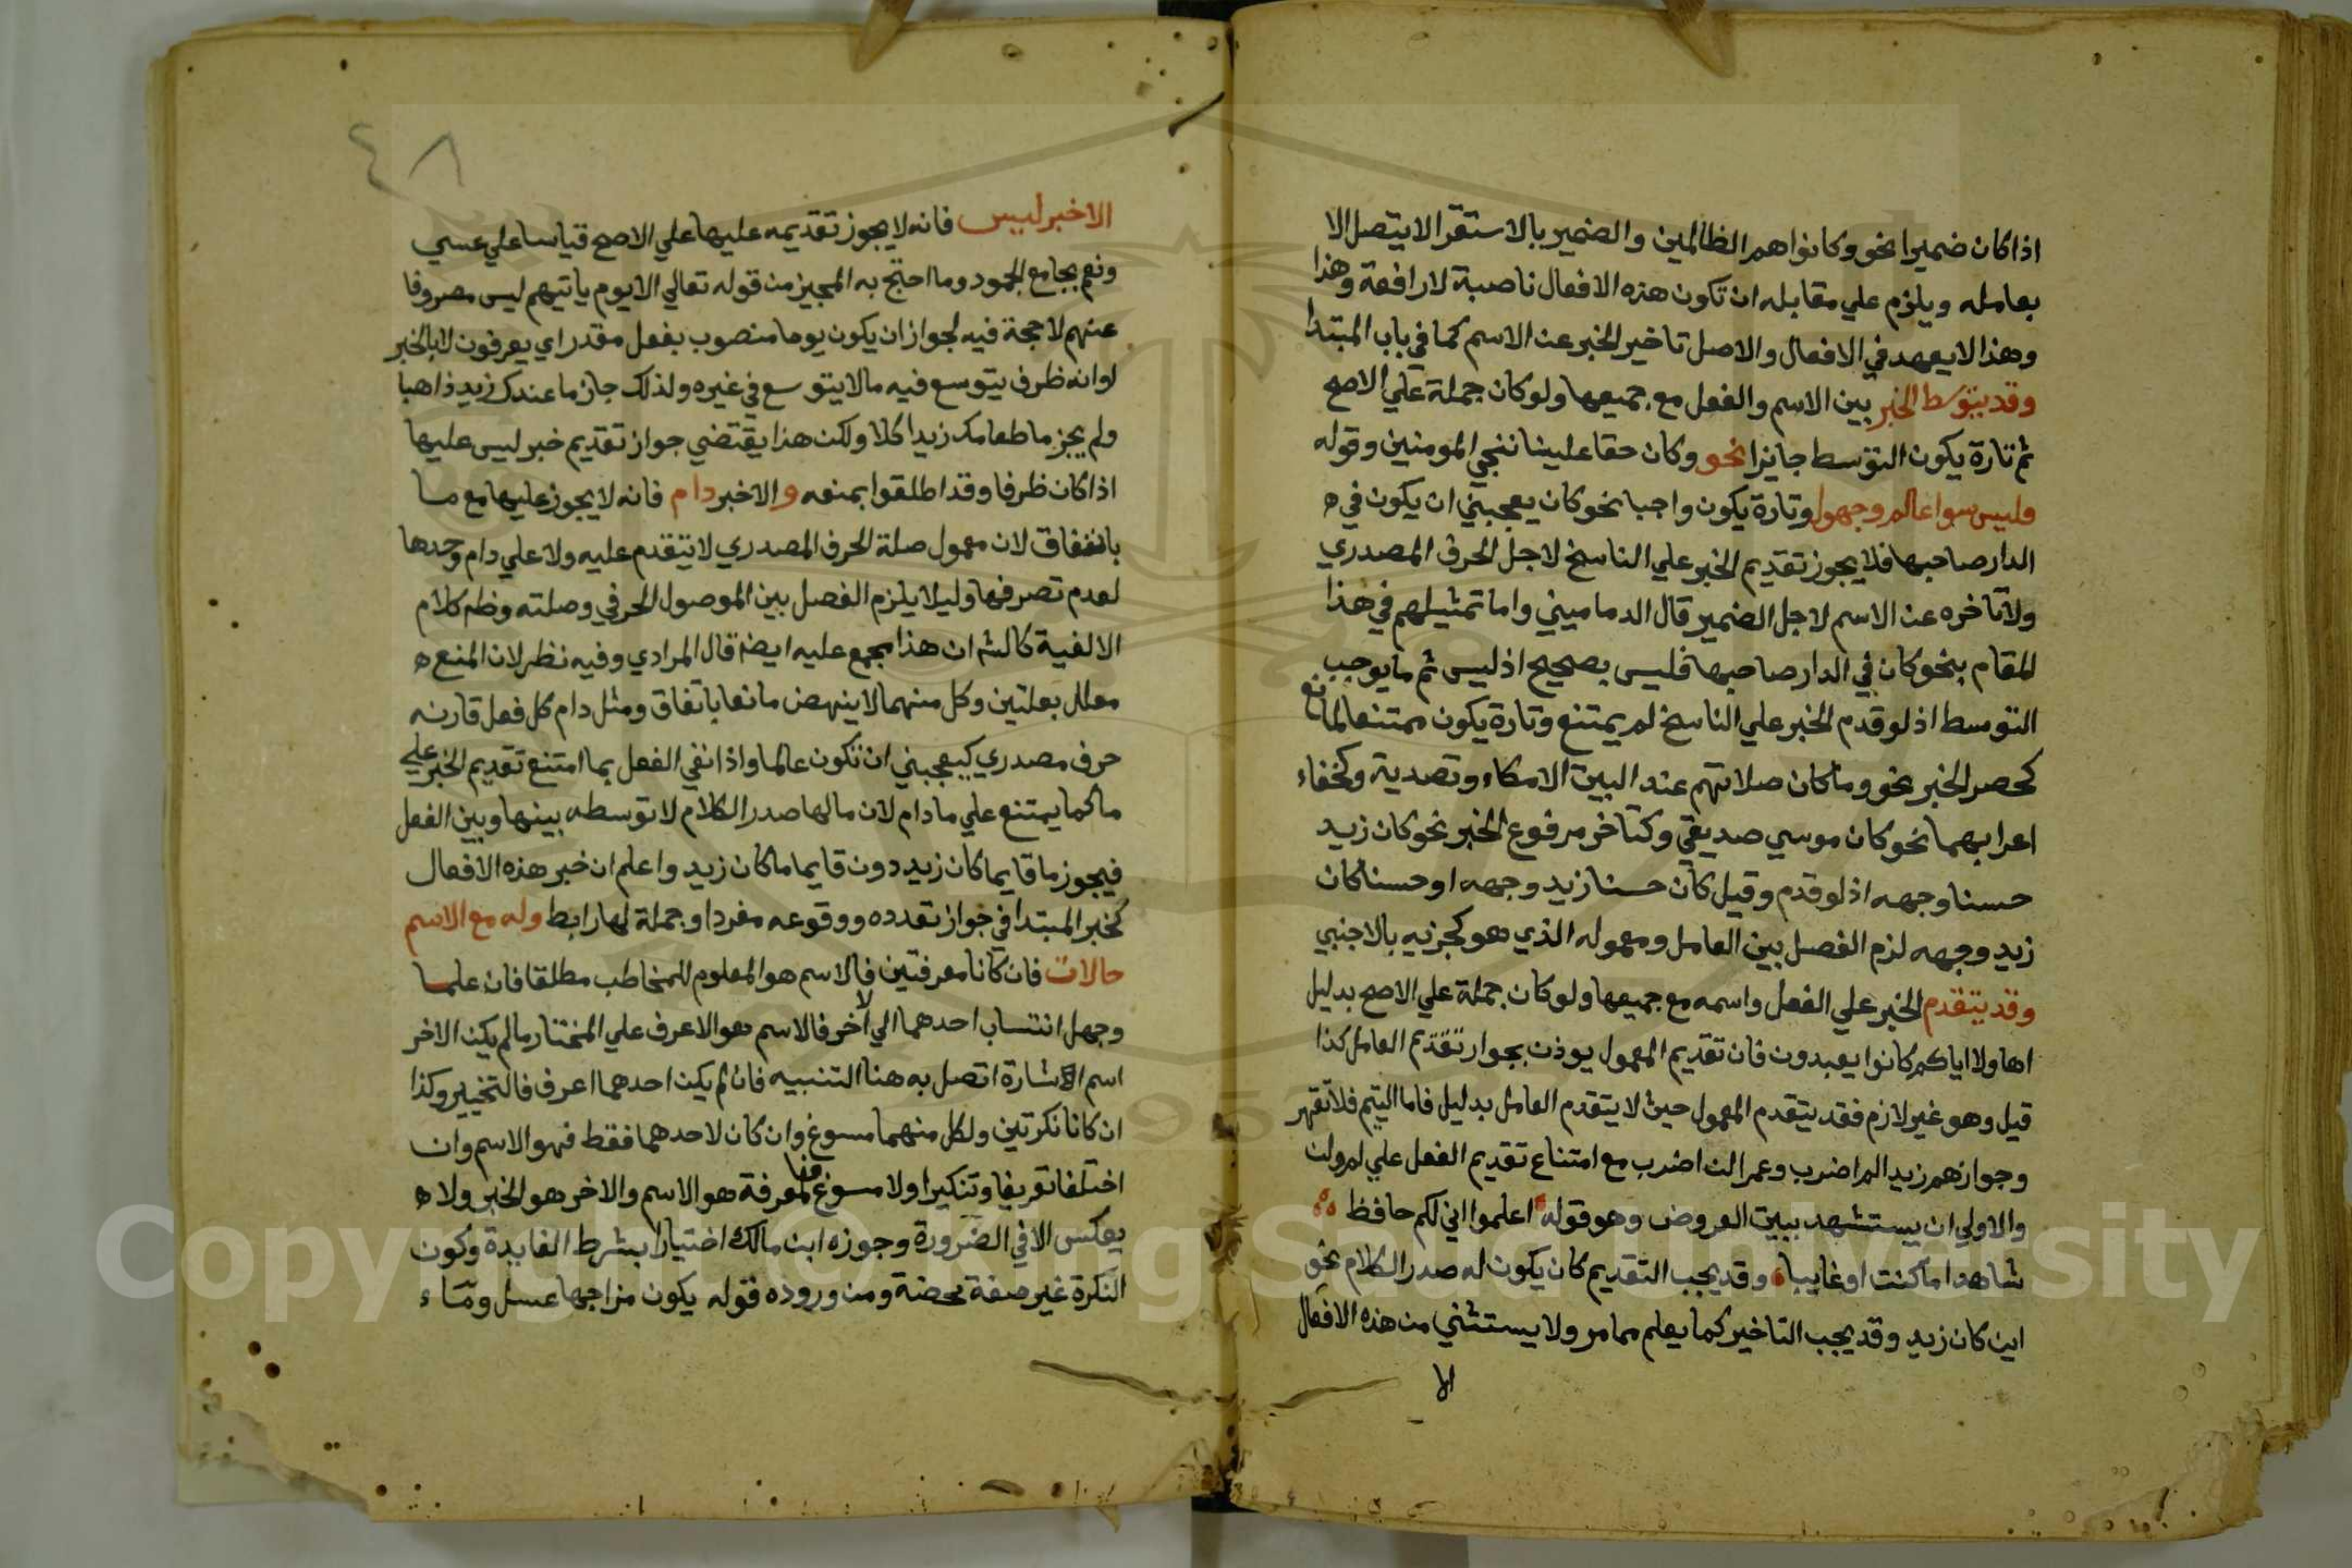 اذا كان ضميرا نحو وكانوا هم الظالمين والضمير بالاستقرا لا يتصل الا
بعامله ويلزم علي مقابله ان تكون هذه الافعال ناصبة لا رافعة وهذا
وهذا لا يعهد في الافعال والاصل تاخير الخبر عن الاسم كما في باب المبتدا
وقد يتوسط الخبر بين الاسم والفعل مع جميعها ولو كان جملة علي الاصح
ثم تارة يكون التوسط جايزا نحو وكان حقا علينا ننجي المومنين وقوله
وليس سوا عالم وجهول وتارة يكون واجبا نحو كان يعجبني ان يكون في ه
الدار صاحبها فلا يجوز تقديم الخبر علي الناسخ لاجل الحرف المصدري
ولا تاخره عن الاسم لاجل الضمير قال الدماميني واما تمثيلهم في هذا
المقام بنحو كان في الدار صاحبها فليس بصحيح اذ ليس ثم ما يوجب
التوسط اذ لو قدم الخبر علي الناسخ لم يمتنع وتارة يكون ممتنعا لمانع
كحصر الخبر نحو وما كان صلاتهم عند البيت الا مكاء وتصدية وكخفاء
اعرابهما نحو كان موسي صديقي وكتاخر مرفوع الخبر نحو كان زيد
حسنا وجهه اذ لو قدم وقيل كان حسنا زيد وجهه او حسنا كان
زيد وجهه لزم الفصل بين العامل ومعموله الذي هو كجزيه بالاجنبي
وقد يتقدم الخبر علي الفعل واسمه مع جميعها ولو كان جملة علي الاصح بدليل
اهاولا اياكم كانوا يعبدون فان تقديم المعمول يوذن بجواز تقديم العامل كذا
قيل وهو غير لازم فقد يتقدم المعمول حيث لا يتقدم العامل بدليل فاما اليتيم فلا تقهر
وجوازهم زيدا لم اضرب وعمرا لن اضرب مع امتناع تقديم الفعل علي لم ولن
والاولي ان يستشهد ببيت العروض وهو قوله اعلموا اني لكم حافظ
شاهدا ما كنت او غايبا وقد يجب التقديم كان يكون له صدر الكلام نحو
اين كان زيد وقد يجب التاخير كما يعلم مما مر ولا يستثني من هذه الافعال
الا
٤٨
الا خبر ليس فانه لا يجوز تقديمه عليها علي الاصح قياسا علي عسي
ونعم بجامع الجمود وما احتج به المجيز من قوله تعالي الا يوم ياتيهم ليس مصروفا
عنهم لا حجة فيه لجواز ان يكون يوما منصوب بفعل مقدر اي يعرفون لا بالخبر
او انه ظرف يتوسع فيه ما لا يتوسع في غيره ولذلك جاز ما عندك زيد ذاهبا
ولم يجز ما طعامك زيد اكلا ولكن هذا يقتضي جواز تقديم خبر ليس عليها
اذا كان ظرفا وقد اطلقوا بمنعه والا خبر دام فانه لا يجوز عليها مع ما
باتفاق لان معمول صلة الحرف المصدري لا يتقدم عليه ولا علي دام وحدها
لعدم تصرفها وليلا يلزم الفصل بين الموصول الحرفي وصلته وظم كلام
الالفية كالشم ان هذا مجمع عليه ايضا قال المرادي وفيه نظر لان المنع ه
معلل بعلتين وكل منهما لا ينهض مانعا باتفاق ومثل دام كل فعل قارنه
حرف مصدري كيعجبني ان تكون عالما واذا نفي الفعل بما امتنع تقديم الخبر علي
ما كما يمتنع علي ما دام لان ما لها صدر الكلام لا توسطه بينها وبين الفعل
فيجوز ما قايما كان زيد دون قايما ما كان زيد واعلم ان خبر هذه الافعال
كخبر المبتدا في جواز تعدده ووقوعه مفردا وجملة لها رابط وله مع الاسم
حالات فان كانا معرفتين فالاسم هو المعلوم للمخاطب مطلقا فان علما
وجهل انتساب احدهما الي الاخر فالاسم هو الاعرف علي المختار ما لم يكن الاخر
اسم الاشارة اتصل به هنا التنبيه فان لم يكن احدهما اعرف فالتخيير وكذا
ان كانا نكرتين ولكل منهما مسوغ وان كان لاحدهما فقط فهو الاسم وان
اختلفا تعريفا وتنكيرا ولا مسوغ فالمعرفة هو الاسم والاخر هو الخبر ولا ه
يعكس الا في الضرورة وجوزه ابن مالك اختيارا بشرط الفايدة وكون
النكرة غير صفة محضة ومن وروده قوله يكون مزاجها عسل وماء
Copyright © King Saud University